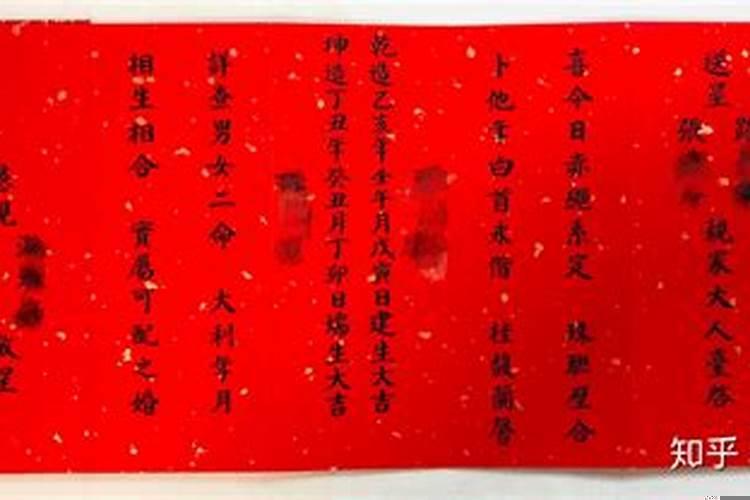 送呈
張 親家大人臺啓
喜今日赤繩系定 珠聯璧合
卜他年白首永偕 桂馥蘭馨
乾造乙亥年壬午月戊寅日建生大吉
坤造丁丑年癸丑月丁卯日端生大吉
詳查男女二命 大利年月
相生相合 實屬可配之婚
敬呈
知乎